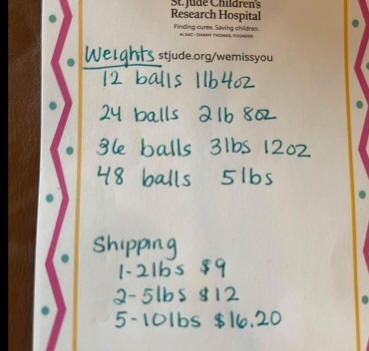 St. Jude Children's
Research Hospital
Finding cures. Saving children.
ALSAC • DANNY THOMAS, FOUNDER
Weights stjude.org/wemissyou
12 balls 1lb 4oz
24 balls 2 lb 8oz
36 balls 3lbs 12oz
48 balls 5lbs
Shipping
1-2lbs $9
2-5lbs $12
5-10lbs $16.20